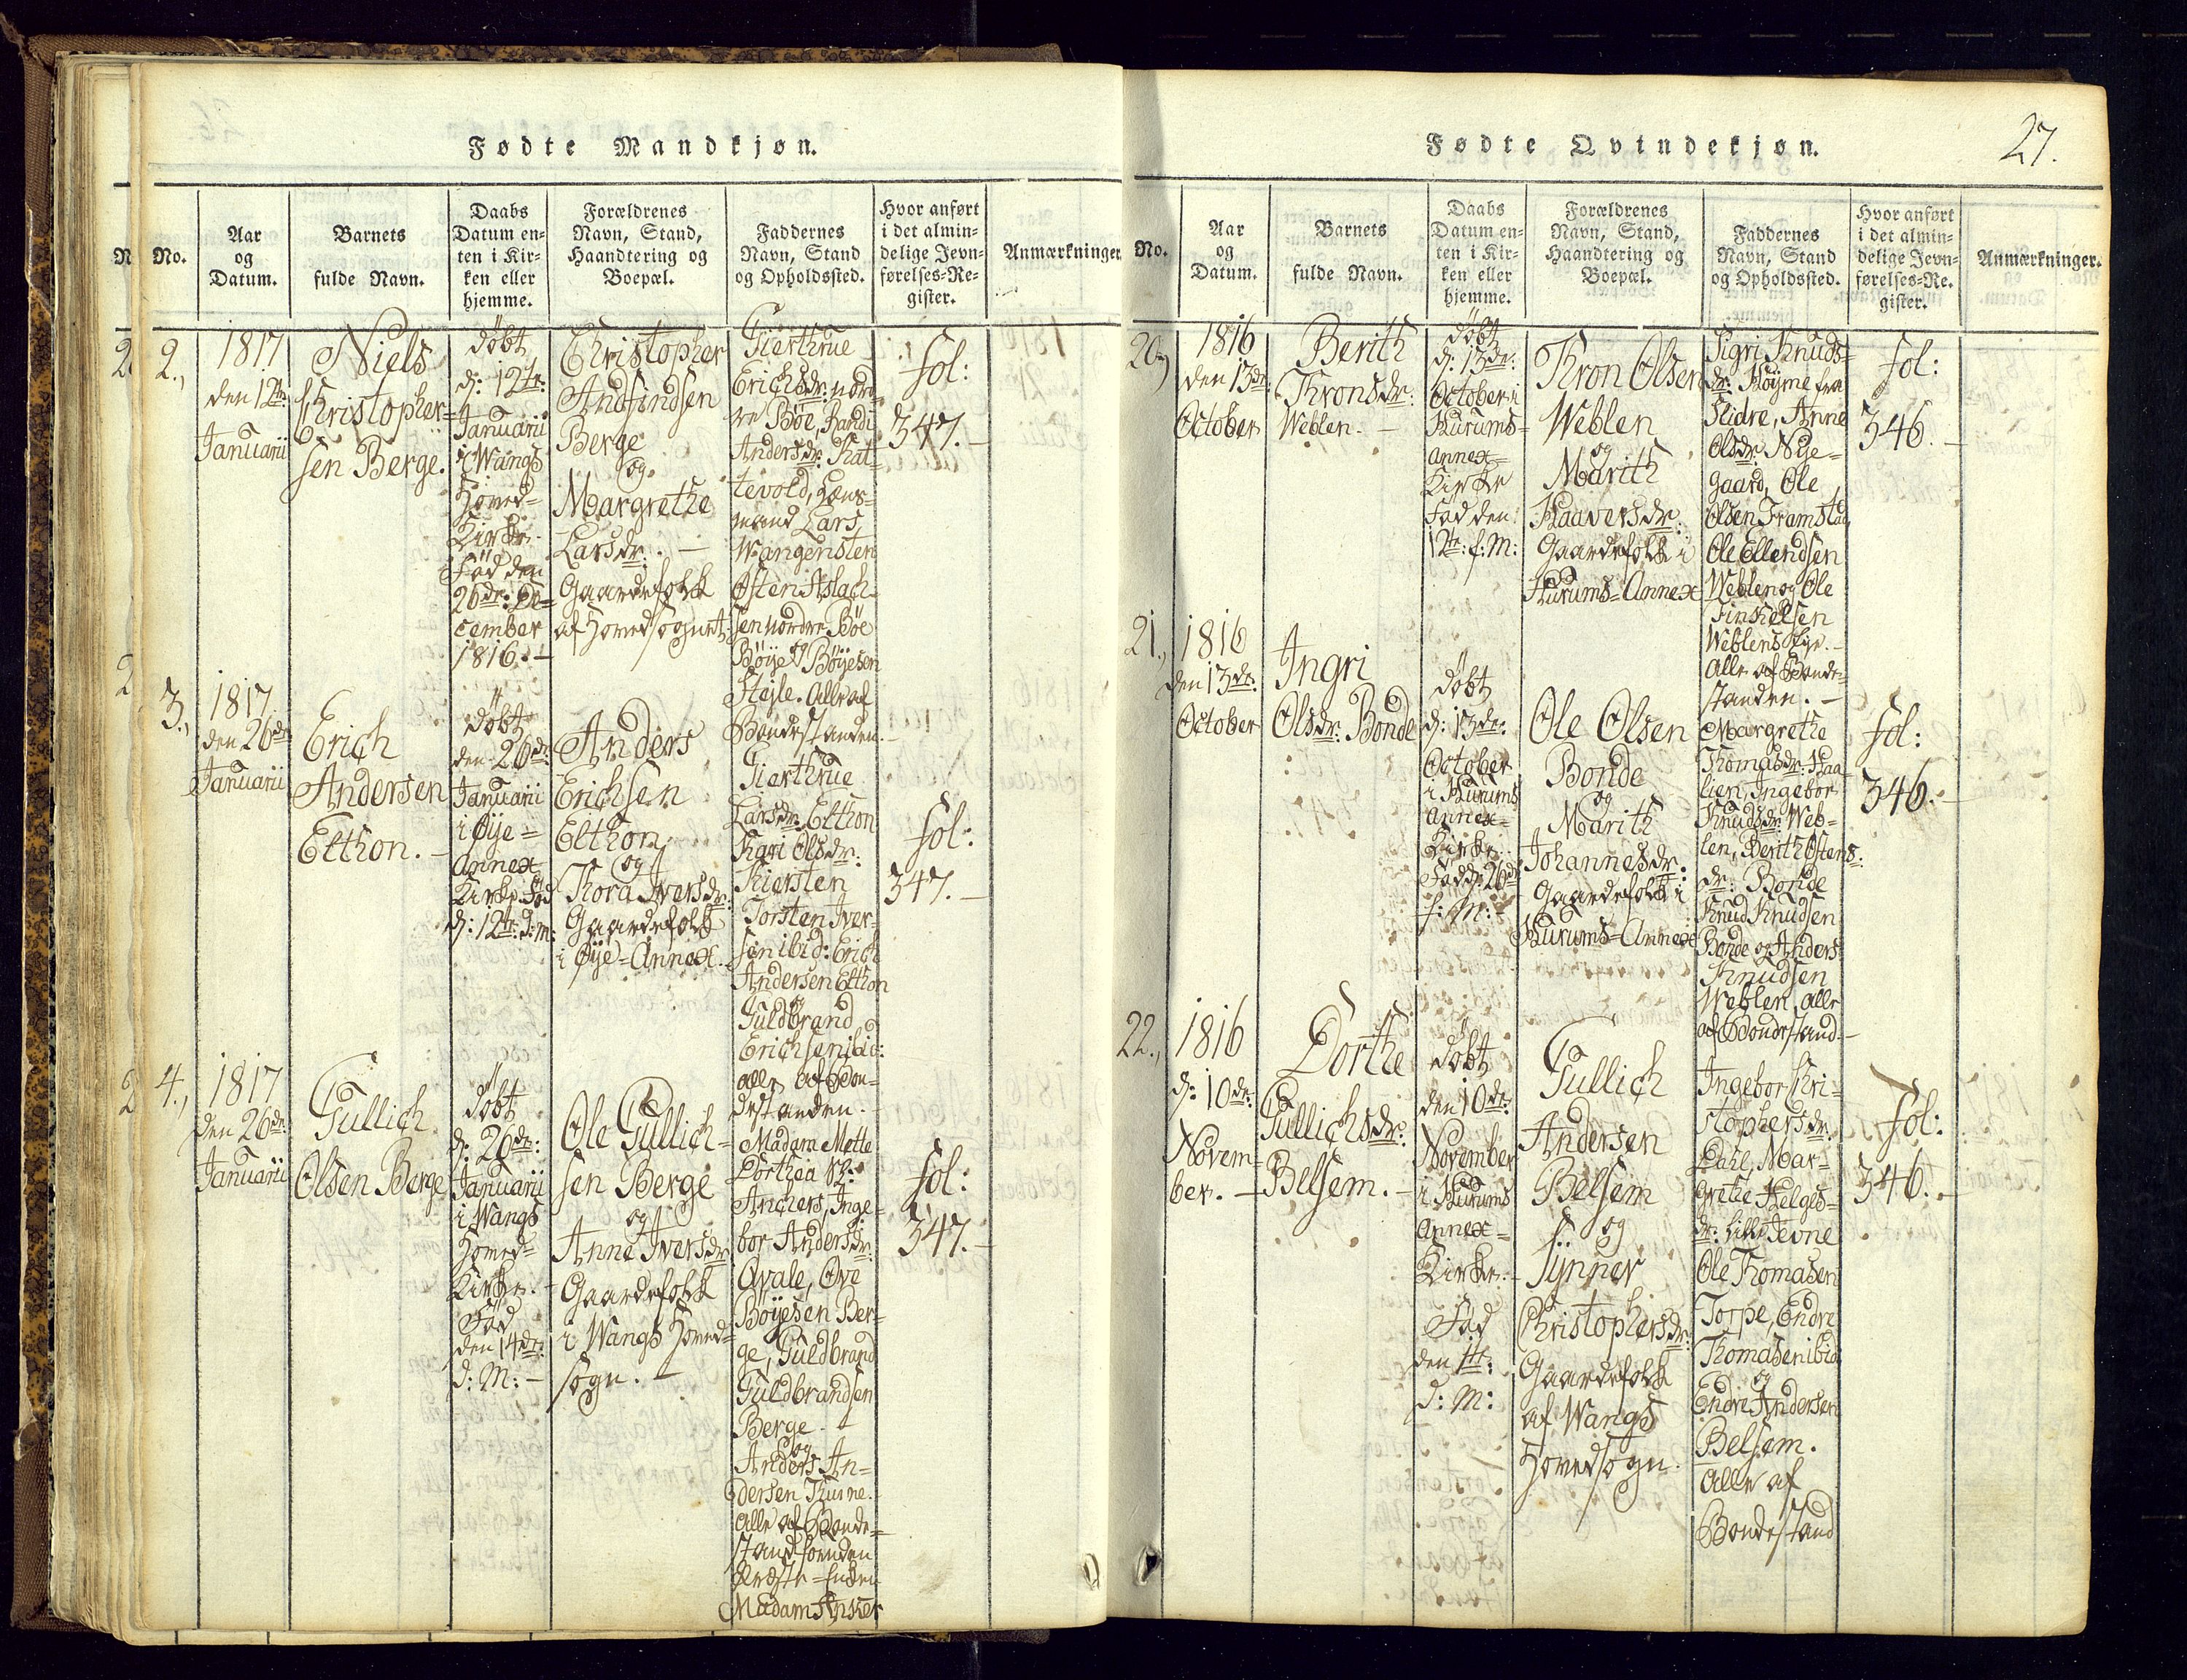 Fødte Mandkjøn.
No.
Aar
og
Datum.
Barnets
fulde Navn.
Daabs
Datum en=
ten i Kir=
ken eller
hjemme.
Forældrenes
Navn, Stand,
Haandtering og
Boepæl.
Faddernes
Navn, Stand
og Opholdssted.
Hvor anført
i det almin=
delige Jevn=
førelses=Re=
gister.
Anmærkninger.
2.,
1817
den 12te
Januarii
Niels
Christopher=
sen Berge.
döbt
d: 12te:
Januarii
i Wangs
Hoved=
Kirke.
Föd den
26de: De=
cember
1816. -
Christopher
Andfindsen
Berge
og
Margrethe
Larsdr: -
Gaardefolk
af Hovedsognet
Gierthrue
Erichsdr: nord=
re Böe, Randi
Andersdr: Kat=
tevold, Lens=
mand Lars
Wangensten
Östen Aslach=
sen nordre Böe
og
Böye Böyesen
Stejle. Alle af
Bondestanden. -
fol:
347. -
3.,
1817.
den 26de
Januarii
Erich
Andersen
Elthon. -
döbt
den 26de:
Januarii
i Øye=
Annex
Kirke. Föd
d: 12te: d: m:
Anders
Erichsen
Elthon
og
Thora Iversdr:
Gaardefolk
i Øye=Annex.
Gierthrue
Larsdr: Elthon
Kari Olsdr:
Kiersten
Torsten Iver=
sen ibid: Erich
Andersen Elthon
og
Guldbrand
Erichsen ibid:
alle af Bon=
destanden. -
fol:
347. -
4.,
1817
den 26de
Januarii
Gullich
Olsen Berge
döbt
d: 26de:
Januarii
i Wangs
Hoved=
Kirke. -
Föd
den 14de:
d: M: -
Ole Gullich=
sen Berge
og
Anne Iversdr:
Gaardefolk
i Wangs Hoved=
sogn. -
Madam Mette
Dorthea
Anchers, Inge=
bor Andersdr:
Qvale, Ove
Böyesen Ber=
ge, Guldbrand
Guldbrandsen
Berge. -
og
Anders An=
dersen Kurne.
Alle af Bonde=
stand foruden
Madam Ancher
fol:
347. -
Fødte Qvindekjøn.
27.
No.
Aar
og
Datum.
Barnets
fulde Navn.
Daabs
Datum en=
ten i Kir=
ken eller
hjemme.
Forældrenes
Navn, Stand,
Haandtering og
Boepæl.
Faddernes
Navn, Stand
og Opholdssted.
Hvor anført
i det almin=
delige Jevn=
førelses=Re=
gister.
Anmærkninger.
20,
1816
den 13de:
October
Berith
Thronsdr:
Weblen. -
döbt
d: 13de:
October i
Hurums=
Annex=
Kirke
Föd den
12te: f: M:
Thron Olsen
Weblen
og
Marith
Haaversdr:
Gaardefolk i
Hurums=Annex
Sigri Knuds=
dr: Höyme fra
Slidre, Anne
Olsdr: Nye=
gaard, Ole
Olsen Framstad
Ole Ellendsen
Weblen og Ole
Finkelsen
Weblens Eye. -
Alle af Bonde=
standen. -
fol:
346. -
21.,
1816
den 13de:
October
Ingri
Olsdr: Bonde
döbt
d: 13de:
October
i Hurums
Annex=
Kirke. -
Föd d: 26de
f: M: -
Ole Olsen
Bonde
og
Marith
Johannesdr:
Gaardefolk i
Hurums=Annex
Margrethe
Thomasdr: Haa=
lien, Ingebor
Knudsdr: Web=
len, Berith Östens=
dr: Bonde
Knud Knudsen
Bonde og Anders
Knudsen
Weblen, alle
af Bondestand. -
fol:
346. -
22.,
1816
d: 10de:
Novem=
ber. -
Dorthe
Gullichsdr:
Belsem. -
döbt
den 10de:
November
i Hurums
Annex=
Kirke. -
Föd
den 1te:
d: M:
Gullich
Andersen
Belsem
og
Synner
Christophersdr:
Gaardefolk
af Wangs
Hovedsogn.
Ingebor Chri=
stophersdr:
Dahl, Mar=
grethe Helges=
dr: lille Jevne
Ole Thomasen
Torpe, Endre
Thomasen ibid:
og
Endre Andersen
Belsem.
Alle af
Bondestand
fol:
346. -